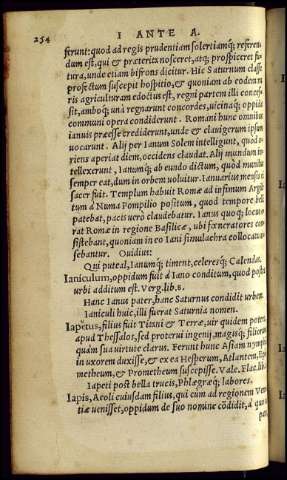 254 I ANTE A.
ferunt: quod ad regis prudentiam solertiamq; referen
dum est, qui & præterita nosceret, atq; prospiceret fu
tura, unde etiam bifrons dicitur. Hic Saturnum classe
profectum suscepit hospitio, & quoniam ab eodem
ris agriculturam edoctus est, regni partem illi conces
sit, amboq; unà regnarunt concordes, uicinaq; oppida
communi opera condiderunt. Romani hunc omnibus
ianuis præesse crediderunt, unde & clauigerum ipsum
uocarunt. Alij per Ianum Solem intelligunt, quòd o
riens aperiat diem, occidens claudat. Alij mundum in
tellexerunt, Ianumq; ab eundo dictum, quòd mundus
semper eat, dum in orbem uoluitur. Ianuarius mensis
sacer fuit. Templum habuit Romæ ad infimum Argile
tum à Numa Pompilio positum, quod tempore belli
patebat, pacis uerò claudebatur. Ianus quoq; locus
rat Romæ in regione Basilicæ, ubi fœneratores con
sistebant, quoniam in eo Iani simulachra collocata
sebantur. Ouidius:
Qui puteal, Ianumq; timent, celeresq; Calendas.
Ianiculum, oppidum fuit à Iano conditum, quod postea
urbi additum est. Verg. lib. 8.
Hanc Ianus pater, hanc Saturnus condidit urbem
Ianiculi huic, illi fuerat Saturnia nomen.
Iapetus, filius fuit Titani & Terræ, uir quidem potens
apud Thessalos, sed proterui ingenij, magisq; filiorum
quàm sua uirtute clarus. Ferunt hunc Asiam nympham
in uxorem duxisse, & ex ea Hesperum, Atlantem, Epi
metheum, & Prometheum suscepisse. Vale. Flac. lib.
Iapeti post bella trucis, Phlægræq; labores.
Iapis, Aeoli eiusdam filius, qui cum ad regionem Vene
tiæ uenisset, oppidum de suo nomine cōdidit, à quo